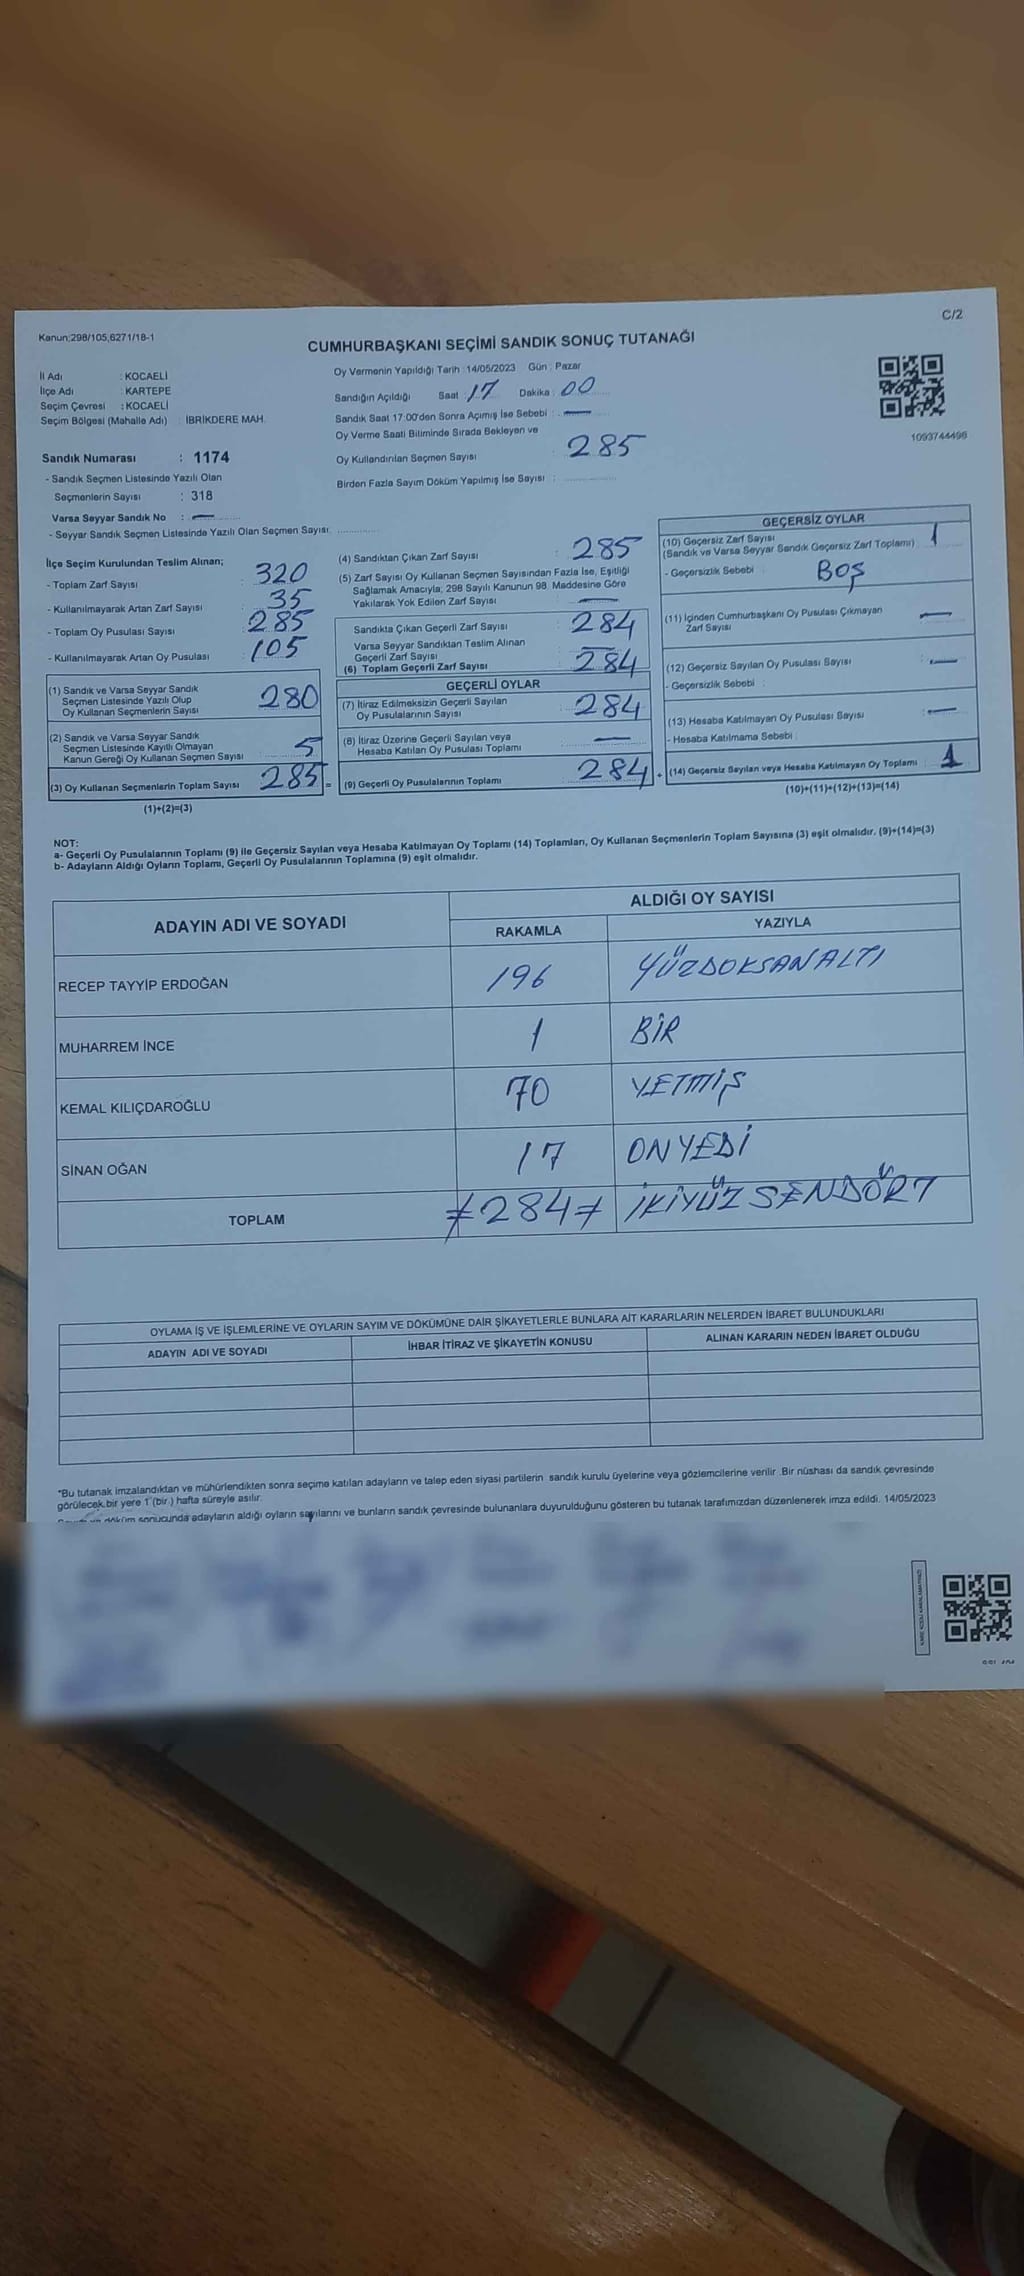 C/2
Kanun;298/105,6271/18-1
CUMHURBAŞKANI SEÇİMİ SANDIK SONUÇ TUTANAĞI
İl Adı : KOCAELİ
İlçe Adı : KARTEPE
Seçim Çevresi : KOCAELİ
Seçim Bölgesi (Mahalle Adı) : İBRİKDERE MAH.
Sandık Numarası : 1174
- Sandık Seçmen Listesinde Yazılı Olan
Seçmenlerin Sayısı : 318
Varsa Seyyar Sandık No : —
- Seyyar Sandık Seçmen Listesinde Yazılı Olan Seçmen Sayısı:
Oy Vermenin Yapıldığı Tarih : 14/05/2023 Gün : Pazar
Sandığın Açıldığı Saat : 17 Dakika : 00
Sandık Saat 17:00'den Sonra Açımış İse Sebebi : —
Oy Verme Saati Bitiminde Sırada Bekleyen ve
Oy Kullandırılan Seçmen Sayısı : 285
Birden Fazla Sayım Döküm Yapılmış İse Sayısı :
1093744496
İlçe Seçim Kurulundan Teslim Alınan;
- Toplam Zarf Sayısı : 320
- Kullanılmayarak Artan Zarf Sayısı : 35
- Toplam Oy Pusulası Sayısı : 285
- Kullanılmayarak Artan Oy Pusulası : 105
(1) Sandık ve Varsa Seyyar Sandık
Seçmen Listesinde Yazılı Olup
Oy Kullanan Seçmenlerin Sayısı 280
(2) Sandık ve Varsa Seyyar Sandık
Seçmen Listesinde Kayıtlı Olmayan
Kanun Gereği Oy Kullanan Seçmen Sayısı 5
(3) Oy Kullanan Seçmenlerin Toplam Sayısı 285 =
(1)+(2)=(3)
(4) Sandıktan Çıkan Zarf Sayısı : 285
(5) Zarf Sayısı Oy Kullanan Seçmen Sayısından Fazla İse, Eşitliği
Sağlamak Amacıyla; 298 Sayılı Kanunun 98. Maddesine Göre
Yakılarak Yok Edilen Zarf Sayısı : —
Sandıkta Çıkan Geçerli Zarf Sayısı : 284
Varsa Seyyar Sandıktan Teslim Alınan
Geçerli Zarf Sayısı : —
(6) Toplam Geçerli Zarf Sayısı : 284
GEÇERLİ OYLAR
(7) İtiraz Edilmeksizin Geçerli Sayılan
Oy Pusulalarının Sayısı : 284
(8) İtiraz Üzerine Geçerli Sayılan veya
Hesaba Katılan Oy Pusulası Toplamı : —
(9) Geçerli Oy Pusulalarının Toplamı : 284 +
GEÇERSİZ OYLAR
(10) Geçersiz Zarf Sayısı
(Sandık ve Varsa Seyyar Sandık Geçersiz Zarf Toplamı) : 1
- Geçersizlik Sebebi : BOŞ
(11) İçinden Cumhurbaşkanı Oy Pusulası Çıkmayan
Zarf Sayısı : —
(12) Geçersiz Sayılan Oy Pusulası Sayısı : —
- Geçersizlik Sebebi :
(13) Hesaba Katılmayan Oy Pusulası Sayısı : —
- Hesaba Katılmama Sebebi :
(14) Geçersiz Sayılan veya Hesaba Katılmayan Oy Toplamı : 1
(10)+(11)+(12)+(13)=(14)
NOT:
a- Geçerli Oy Pusulalarının Toplamı (9) ile Geçersiz Sayılan veya Hesaba Katılmayan Oy Toplamı (14) Toplamları, Oy Kullanan Seçmenlerin Toplam Sayısına (3) eşit olmalıdır. (9)+(14)=(3)
b- Adayların Aldığı Oyların Toplamı, Geçerli Oy Pusulalarının Toplamına (9) eşit olmalıdır.
ADAYIN ADI VE SOYADI
ALDIĞI OY SAYISI
RAKAMLA YAZIYLA
RECEP TAYYİP ERDOĞAN 196 YÜZDOKSANALTI
MUHARREM İNCE 1 BİR
KEMAL KILIÇDAROĞLU 70 YETMİŞ
SİNAN OĞAN 17 ONYEDİ
TOPLAM ≠284≠ İKİYÜZSENDÖRT
OYLAMA İŞ VE İŞLEMLERİNE VE OYLARIN SAYIM VE DÖKÜMÜNE DAİR ŞİKAYETLERLE BUNLARA AİT KARARLARIN NELERDEN İBARET BULUNDUKLARI
ADAYIN ADI VE SOYADI İHBAR İTİRAZ VE ŞİKAYETİN KONUSU ALINAN KARARIN NEDEN İBARET OLDUĞU
*Bu tutanak imzalandıktan ve mühürlendikten sonra seçime katılan adayların ve talep eden siyasi partilerin sandık kurulu üyelerine veya gözlemcilerine verilir .Bir nüshası da sandık çevresinde
görülecek bir yere 1 (bir ) hafta süreyle asılır.
döküm sonucunda adayların aldığı oyların sayılarını ve bunların sandık çevresinde bulunanlara duyurulduğunu gösteren bu tutanak tarafımızdan düzenlenerek imza edildi. 14/05/2023